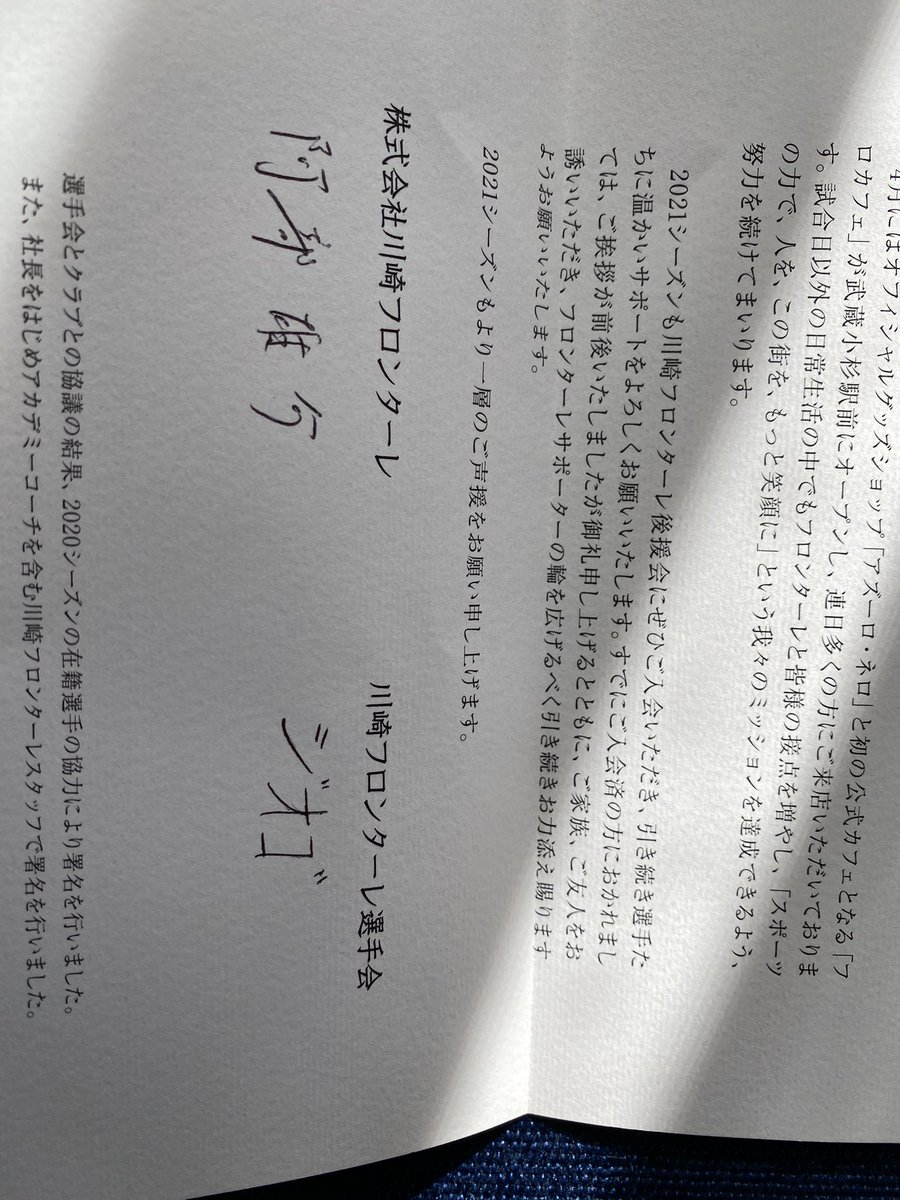 4月にはオフィシャルグッズショップ「アズーロ・ネロ」と初の公式カフェとなる「フ
ロカフェ」が武蔵小杉駅前にオープンし、連日多くの方にご来店いただいておりま
す。試合日以外の日常生活の中でもフロンターレと皆様の接点を増やし、「スポーツ
の力で、人を、この街を、もっと笑顔に」という我々のミッションを達成できるよう、
努力を続けてまいります。
2021シーズンも川崎フロンターレ後援会にぜひご入会いただき、引き続き選手た
ちに温かいサポートをよろしくお願いいたします。すでにご入会済の方におかれまし
ては、ご挨拶が前後いたしましたが御礼申し上げるとともに、ご家族、ご友人をお
誘いいただき、フロンターレサポーターの輪を広げるべく引き続きお力添え賜ります
ようお願いいたします。
2021シーズンもより一層のご声援をお願い申し上げます。
株式会社川崎フロンターレ
川崎フロンターレ選手会
ジオゴ
選手会とクラブとの協議の結果、2020シーズンの在籍選手の協力により署名を行いました。
また、社長をはじめアカデミーコーチを含む川崎フロンターレスタッフで署名を行いました。